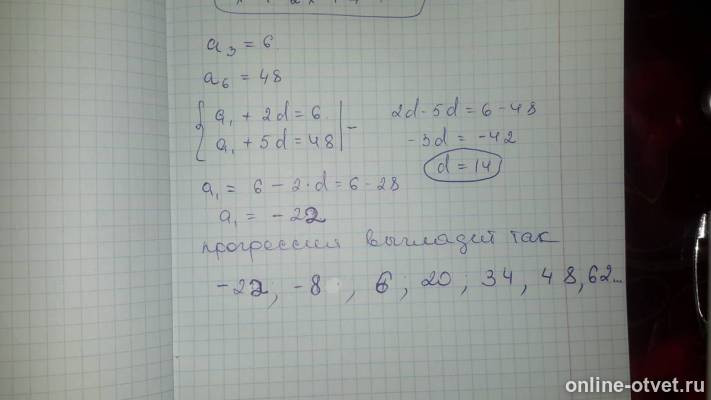 a₃ = 6
a₆ = 48
a₁ + 2d = 6
a₁ + 5d = 48
2d - 5d = 6 - 48
-3d = -42
d = 14
a₁ = 6 - 2·d = 6 - 28
a₁ = -22
прогрессия выглядит так
-22, -8, 6; 20; 34, 48, 62...
online-otvet.ru